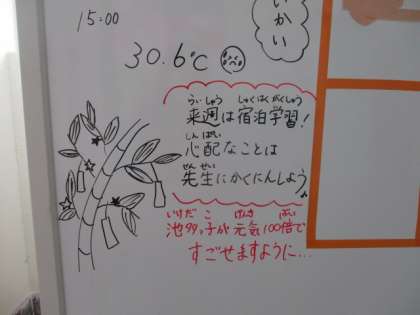 いかい
15:00
30.6℃
らいしゅう しゅくはくがくしゅう
来週は宿泊学習!
しんぱい
心配なことは
せんせい
先生にかくにんしよう♪
いけだ こ げんき ばい
池多っ子が元気100倍で
すごせますように…